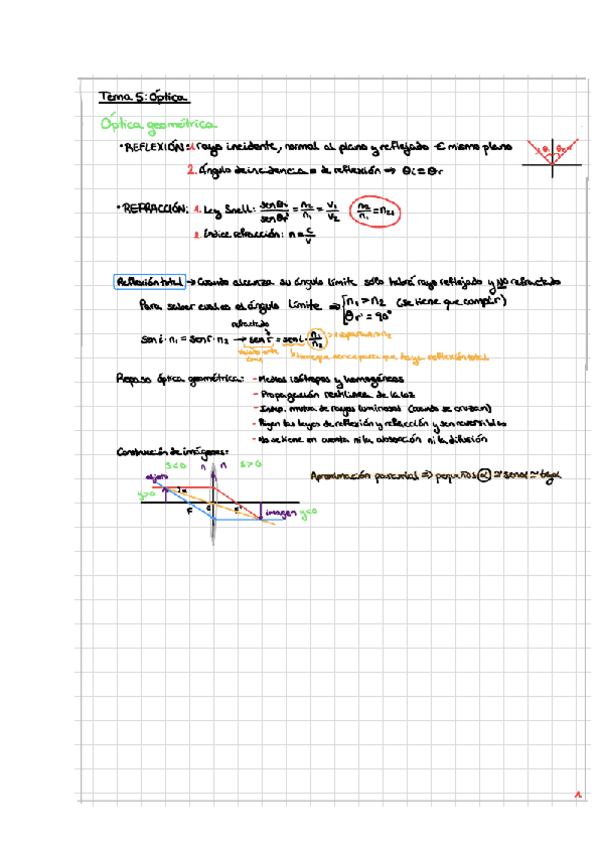 Tema 5: Óptica
Óptica geométrica
• REFLEXIÓN: 1. rayo incidente, normal al plano y reflejado ∈ mismo plano
θi θr
2. Ángulo de incidencia = de reflexión ⇒ θi = θr
• REFRACCIÓN: 1. Ley Snell: sen θi / sen θr = n2/n1 = v1/v2 n2/n1 = n21
2. Índice refracción: n = c/v
Reflexión total → Cuando alcanza su ángulo límite sólo habrá rayo reflejado y NO refractado
Para saber cual es el ángulo límite ⇒ { n1 > n2 (se tiene que cumplir)
θr' = 90°
refractado
sen i · n1 = sen r · n2 → sen r = sen i · n1/n2
que haya reflexión total
Repaso óptica geométrica: - Medios isótropos y homogéneos
- Propagación rectilínea de la luz
- Indep. mutua de rayos luminosos (cuando se cruzan)
- Rigen las leyes de reflexión y refracción y son reversibles
- No se tiene en cuenta ni la absorción ni la difusión
Construcción de imágenes:
s<0 n n s>0
Aproximación paraxial ⇒ pequeños α ≅ sen α ≃ tg α
objeto
y>0
F O F'
imagen y<0
1